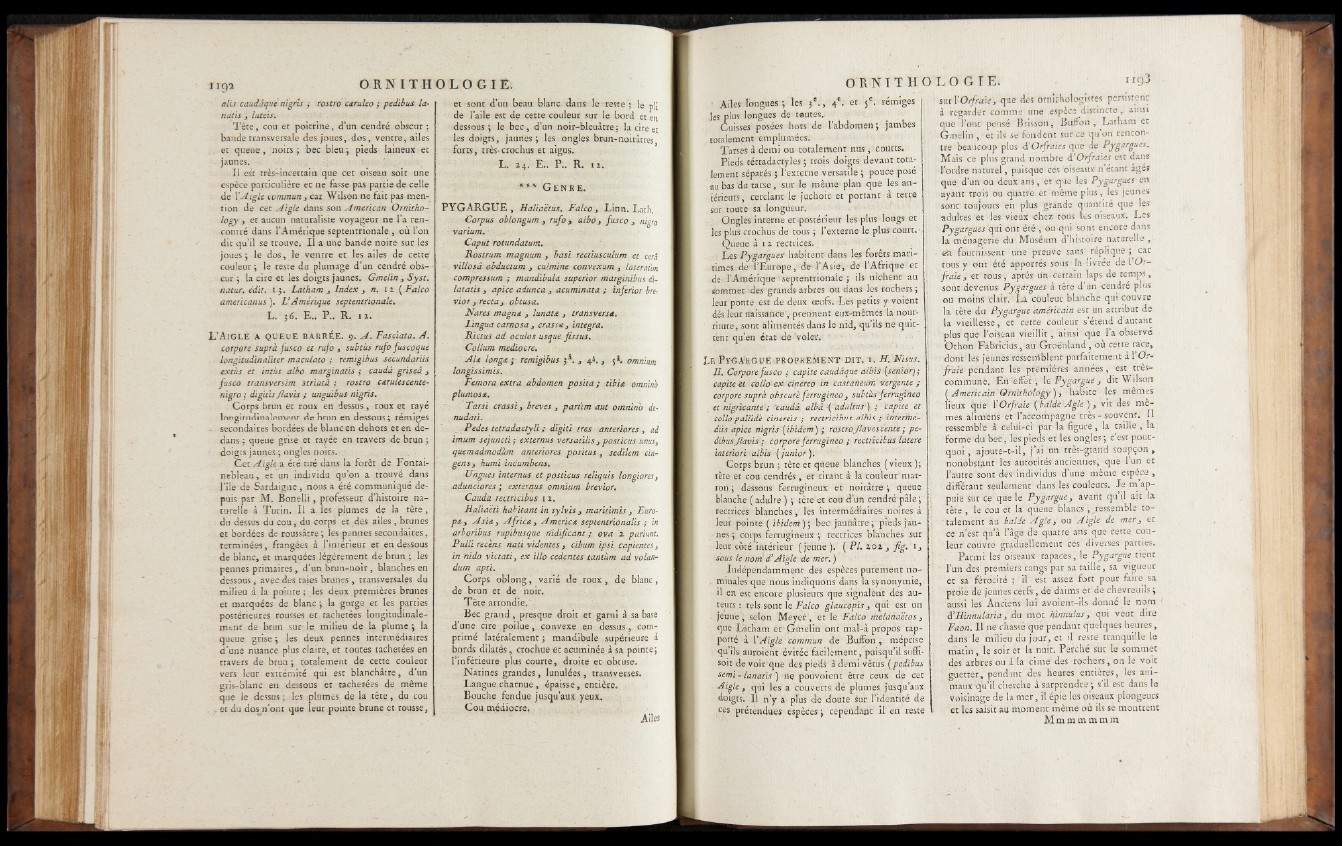 1192 ORNITHOLOGIE.
alis caudâque nigris ; rostro cæruleo ; pedibus la-
natis, luteis.
Tête, cou et poitrine, d'un cendré obscur ;
bande transversale des joues, dos, ventre, ailes
et queue, noirs ; bec bleu ; pieds laineux et
jaunes.
Il est très-incertain que cet oiseau soit une
espèce particulière et ne fasse pas partie de celle
de l'Aigle commun, car Wilson ne fait pas men-
tion de cet Aigle dans son American Ornitho-
logy, et aucun naturaliste voyageur ne l'a ren-
contré dans l'Amérique septentrionale, où l'on
dit qu'il se trouve. Il a une bande noire sur les
joues ; le dos, le ventre et les ailes de cette
couleur ; le reste du plumage d'un cendré obs-
cur ; la cire et les doigts jaunes. Gmelin, Syst.
natur. édit. 13. Latham, Index, n. 12 (Falco
americanus). L'Amérique septentrionale.
L. 36. E.. P.. R. 12.
L'AIGLE A QUEUE BARRÉE. 9. A. Fasciata. A.
corpore suprà fusco et rufo, subtùs rufo fuscoque
longitudinaliter maculato ; remigibus secundariis
extùs et intùs albo marginatis ; caudâ griseâ,
fusco transversim striatâ ; rostro cærulescente-
nigro ; digitis flavis ; unguibus nigris.
Corps brun et roux en dessus, roux et rayé
longitudinalement de brun en dessous ; rémiges
secondaires bordées de blanc en dehors et en de-
dans ; queue grise et rayée en travers de brun ;
doigts jaunes ; ongles noirs.
Cet Aigle a été tiré dans la forêt de Fontai-
nebleau, et un individu qu'on a trouvé dans
l'île de Sardaigne, nous a été communiqué de-
puis par M. Bonelli, professeur d'histoire na-
turelle à Turin. Il a les plumes de la tête,
du dessus du cou, du corps et des ailes, brunes
et bordées de roussâtre ; les pennes secondaires,
terminées, frangées à l'intérieur et en dessous
de blanc, et marquées légèrement de brun ; les
pennes primaires, d'un brun-noir, blanches en
dessous, avec des raies brunes, transversales du
milieu à la pointe ; les deux premières brunes
et marquées de blanc ; la gorge et les parties
postérieures rousses et tachetées longitudinale-
ment de brun sur le milieu de la plume ; la
queue grise ; les deux pennes intermédiaires
d'une nuance plus claire, et toutes tachetées en
travers de brun ; totalement de cette couleur
vers leur extrémité qui est blanchâtre, d'un
gris-blanc en dessous et tachetées de même
que le dessus ; les plumes de la tête, du cou
et du dos n'ont que leur pointe brune et rousse,
et sont d'un beau blanc dans le reste ; le pli
de l'aile est de cette couleur sur le bord et en
dessous ; le bec, d'un noir-bleuâtre ; la cire et
les doigts, jaunes ; les ongles brun-noirâtres,
forts, très-crochus et aigus.
L. 24. E.. P.. R. 12.
*** GENRE.
PYGARGUE, Haliaëtus, Falco, Linn. Lath.
Corpus oblongum, rufo, albo, fusco, nigro
varium.
Caput rotundatum.
Rostrum magnum, basi rectiusculum et cerâ
villosâ obductum, culmine convexum, lateratim
compressum ; mandibula superior marginibus di-
latatis, apice adunca, acuminata ; inferior bre-
vior, recta, obtusa.
Nares magnæ, lunatæ, transversæ.
Lingua carnosa, crassæ, integra.
Rictus ad oculos usque fissus.
Collum mediocre.
Alæ longæ ; remigibus 3ª., 4ª., 5ª. omnium
longissimis.
Femora extra abdomen posita ; tibiæ omninò
plumosæ.
Tarsi crassi, breves, partìm aut omninò de-
nudati.
Pedes tetradactyli ; digiti tres anteriores, ad
imum sejuncti ; externus versatilis, posticus unus,
quemadmodùm anteriores positus, sedilem cin-
gens, humi incumbens.
Ungues internus et posticus reliquis longiores,
adunciores ; externus omnium brevior.
Cauda rectricibus 12.
Haliaëti habitant in sylvis, maritimis, Euro-
pæ, Asiæ, Africæ, Americæ septentrionalis ; in
arboribus rupibusque nidificant ; ova 2 pariunt.
Pulli recèns nati videntes, cibum ipsi capientes,
in nido victati, ex illo cedentes tantùm ad volan-
dum apti.
Corps oblong, varié de roux, de blanc,
de brun et de noir.
Tête arrondie.
Bec grand, presque droit et garni à sa base
d'une cire poilue, convexe en dessus, com-
primé latéralement ; mandibule supérieure à
bords dilatés, crochue et acuminée à sa pointe ;
l'inférieure plus courte, droite et obtuse.
Narines grandes, lunulées, transverses.
Langue charnue, épaisse, entière.
Bouche fendue jusqu'aux yeux.
Cou médiocre.
Ailes
ORNITHOLOGIE. 1193
Ailes longues ; les 3e., 4e. et 5e. rémiges
les plus longues de toutes.
Cuisses posées hors de l'abdomen ; jambes
totalement emplumées.
Tarses à demi ou totalement nus, courts.
Pieds tétradactyles ; trois doigts devant tota-
lement séparés ; l'externe versatile ; pouce posé
au bas du tarse, sur le même plan que les an-
térieurs, cerclant le juchoir et portant à terre
sur toute sa longueur.
Ongles interne et postérieur les plus longs et
les plus crochus de tous ; l'externe le plus court.
Queue à 12 rectrices.
Les Pygargues habitent dans les forêts mari-
times de l'Europe, de l'Asie, de l'Afrique et
de l'Amérique septentrionale ; ils nichent au
sommet des grands arbres ou dans les rochers ;
leur ponte est de deux œufs. Les petits y voient
dès leur naissance, prennent eux-mêmes la nour-
riture, sont alimentés dans le nid, qu'ils ne quit-
tent qu'en état de voler.
LE PYGARGUE PROPREMENT DIT. 1. H. Nisus.
H. Corpore fusco ; capite caudâque albis (senior) ;
capite et collo ex cinereo in castaneum vergente ;
corpore suprà obscurè ferrugineo, subtùs ferrugineo
et nigricante ; caudâ albâ (adultus) ; capite et
collo pallidè cinereis ; rectricibus albis ; interme-
diis apice nigris (ibidem) ; rostro flavescente ; pe-
dibus flavis ; corpore ferrugineo ; rectricibus latere
interiori albis (junior).
Corps brun ; tête et queue blanches (vieux) ;
tête et cou cendrés, et tirant à la couleur mar-
ron ; dessous ferrugineux et noirâtre ; queue
blanche (adulte) ; tête et cou d'un cendré pâle ;
rectrices blanches, les intermédiaires noires à
leur pointe (ibidem) ; bec jaunâtre ; pieds jau-
nes ; corps ferrugineux ; rectrices blanches sur
leur côté intérieur (jeune). (Pl. 202, fig. 1,
sous le nom d'Aigle de mer.)
Indépendamment des espèces purement no-
minales que nous indiquons dans la synonymie,
il en est encore plusieurs que signalent des au-
teurs : tels sont le Falco glaucopis, qui est un
jeune, selon Meyer, et le Falco melanaëtos,
que Latham et Gmelin ont mal-à propos rap-
porté à l'Aigle commun de Buffon, méprise
qu'ils auroient évitée facilement, puisqu'il suffi-
soit de voir que des pieds à demi vêtus (pedibus
semi-lanatis) ne pouvoient être ceux de cet
Aigle, qui les a couverts de plumes jusqu'aux
doigts. Il n'y a plus de doute sur l'identité de
ces prétendues espèces ; cependant il en reste
sur l'Orfraie, que des ornithologistes persistent
à regarder comme une espèce distincte, ainsi
que l'ont pensé Brisson, Buffon, Latham et
Gmelin, et ils se fondent sur ce qu'on rencon-
tre beaucoup plus d'Orfraies que de Pygargues.
Mais ce plus grand nombre d'Orfraies est dans
l'ordre naturel, puisque ces oiseaux n'étant âgés
que d'un ou deux ans, et que les Pygargues en
ayant trois ou quatre et même plus, les jeunes
sont toujours en plus grande quantité que les
adultes et les vieux chez tous les oiseaux. Les
Pygargues qui ont été, ou qui sont encore dans
la ménagerie du Muséum d'histoire naturelle,
en fournissent une preuve sans réplique ; car
tous y ont été apportés sous la livrée de l'Or-
fraie, et tous, après un certain laps de temps,
sont devenus Pygargues à tête d'un cendré plus
ou moins clair. La couleur blanche qui couvre
la tête du Pygargue américain est un attribut de
la vieillesse, et cette couleur s'étend d'autant
plus que l'oiseau vieillit, ainsi que l'a observé
Othon Fabricius, au Groënland, où cette race,
dont les jeunes ressemblent parfaitement à l'Or-
fraie pendant les premières années, est très-
commune. En effet, le Pygargue, dit Wilson
(American Ornithology), habite les mêmes
lieux que l'Orfraie (balde Agle), vit des mê-
mes alimens et l'accompagne très-souvent. Il
ressemble à celui-ci par la figure, la taille, la
forme du bec, les pieds et les ongles ; c'est pour-
quoi, ajoute-t-il, j'ai un très-grand soupçon,
nonobstant les autorités anciennes, que l'un et
l'autre sont des individus d'une même espèce,
différant seulement dans les couleurs. Je m'ap-
puie sur ce que le Pygargue, avant qu'il ait la
tête, le cou et la queue blancs, ressemble to-
talement au balde Agle, ou Aigle de mer, et
ce n'est qu'à l'âge de quatre ans que cette cou-
leur couvre graduellement ces diverses parties.
Parmi les oiseaux rapaces, le Pygargue tient
l'un des premiers rangs par sa taille, sa vigueur
et sa férocité ; il est assez fort pour faire sa
proie de jeunes cerfs, de daims et de chevreuils ;
aussi les Anciens lui avoient-ils donné le nom
d'Hinnularia, du mot hinnulus, qui veut dire
Faon. Il ne chasse que pendant quelques heures,
dans le milieu du jour, et il reste tranquille le
matin, le soir et la nuit. Perché sur le sommet
des arbres ou à la cime des rochers, on le voit
guetter, pendant des heures entières, les ani-
maux qu'il cherche à surprendre ; s'il est dans le
voisinage de la mer, il épie les oiseaux plongeurs
et les saisit au moment même où ils se montrent
Mmmmmmm